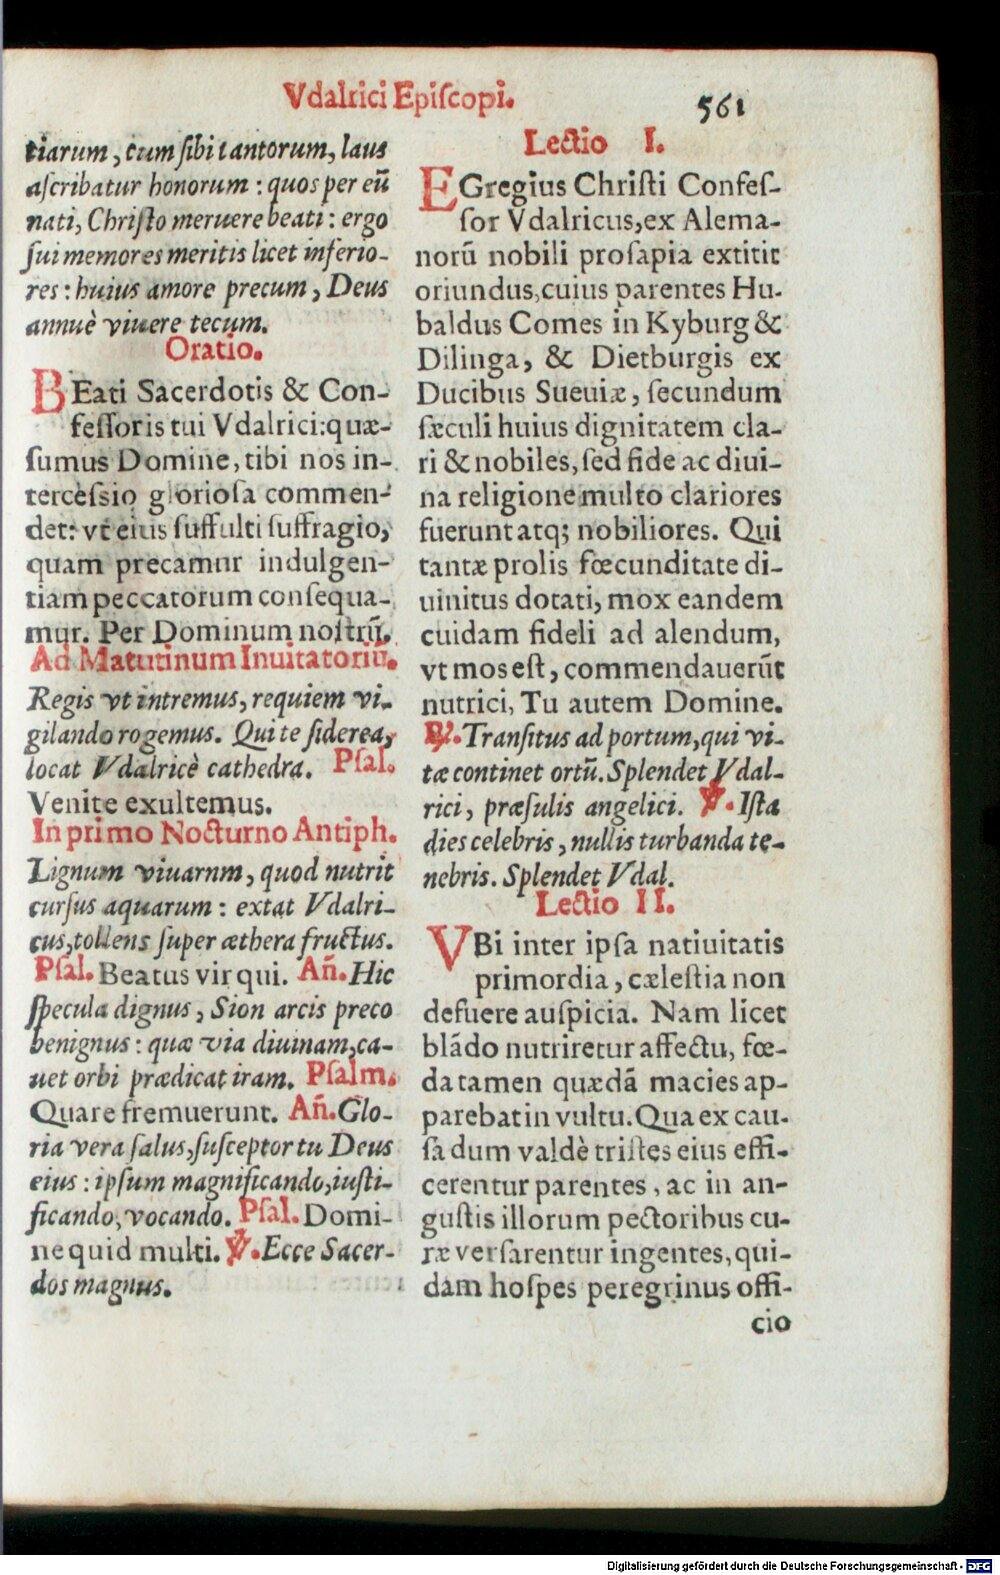 Vdalrici Epiſcopi.
561
tiarum, cum ſibi tantorum, laus
aſcribatur honorum : quos per eũ
nati, Chriſto meruere beati : ergo
ſui memores meritis licet inferio-
res : huius amore precum, Deus
annuè viuere tecum.
Oratio.
BEati Sacerdotis & Con-
feſſoris tui Vdalrici: quæ-
ſumus Domine, tibi nos in-
terceſsio glorioſa commen-
det: vt eius ſuffulti ſuffragio,
quam precamur indulgen-
tiam peccatorum conſequa-
mur. Per Dominum noſtrũ.
Ad Matutinum Inuitatoriũ.
Regis vt intremus, requiem vi-
gilando rogemus. Qui te ſiderea,
locat Vdalricè cathedra. Pſal.
Venite exultemus.
In primo Nocturno Antiph.
Lignum viuarnm, quod nutrit
curſus aquarum : extat Vdalri-
cus, tollens ſuper æthera fructus.
Pſal. Beatus vir qui. Añ. Hic
ſpecula dignus, Sion arcis preco
benignus : quæ via diuinam, ca-
uet orbi prædicat iram. Pſalm.
Quare fremuerunt. Añ. Glo-
ria vera ſalus, ſuſceptor tu Deus
eius : ipſum magnificando, iuſti-
ficando, vocando. Pſal. Domi-
ne quid multi. ℣. Ecce Sacer-
dos magnus.
Lectio I.
EGregius Chriſti Confeſ-
ſor Vdalricus, ex Alema-
norũ nobili proſapia extitit
oriundus, cuius parentes Hu-
baldus Comes in Kyburg &
Dilinga, & Dietburgis ex
Ducibus Sueuiæ, ſecundum
ſæculi huius dignitatem cla-
ri & nobiles, ſed fide ac diui-
na religione multo clariores
fuerunt atq; nobiliores. Qui
tantæ prolis fœcunditate di-
uinitus dotati, mox eandem
cuidam fideli ad alendum,
vt mos eſt, commendauerũt
nutrici, Tu autem Domine.
℟. Tranſitus ad portum, qui vi-
tæ continet ortũ. Splendet Vdal-
rici, præſulis angelici. ℣. Iſta
dies celebris, nullis turbanda te-
nebris. Splendet Vdal.
Lectio II.
VBi inter ipſa natiuitatis
primordia, cæleſtia non
defuere auſpicia. Nam licet
blãdo nutriretur affectu, fœ-
da tamen quædã macies ap-
parebat in vultu. Qua ex cau-
ſa dum valdè triſtes eius effi-
cerentur parentes, ac in an-
guſtis illorum pectoribus cu-
ræ verſarentur ingentes, qui-
dam hoſpes peregrinus offi-
cio
Digitalisierung gefördert durch die Deutsche Forschungsgemeinschaft - DFG